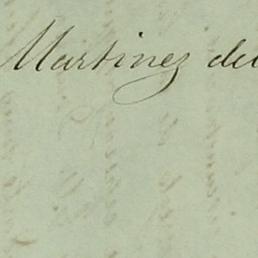 Martinez del